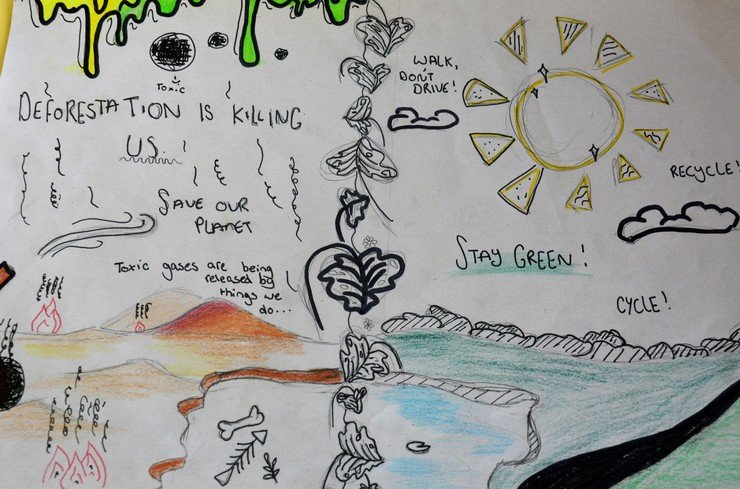 TOXIC
DEFORESTATION IS KILLING
US.
SAVE OUR
PLANET
Toxic gases are being
released by
things we
do...
WALK,
DON'T
DRIVE!
RECYCLE!
STAY GREEN!
CYCLE!